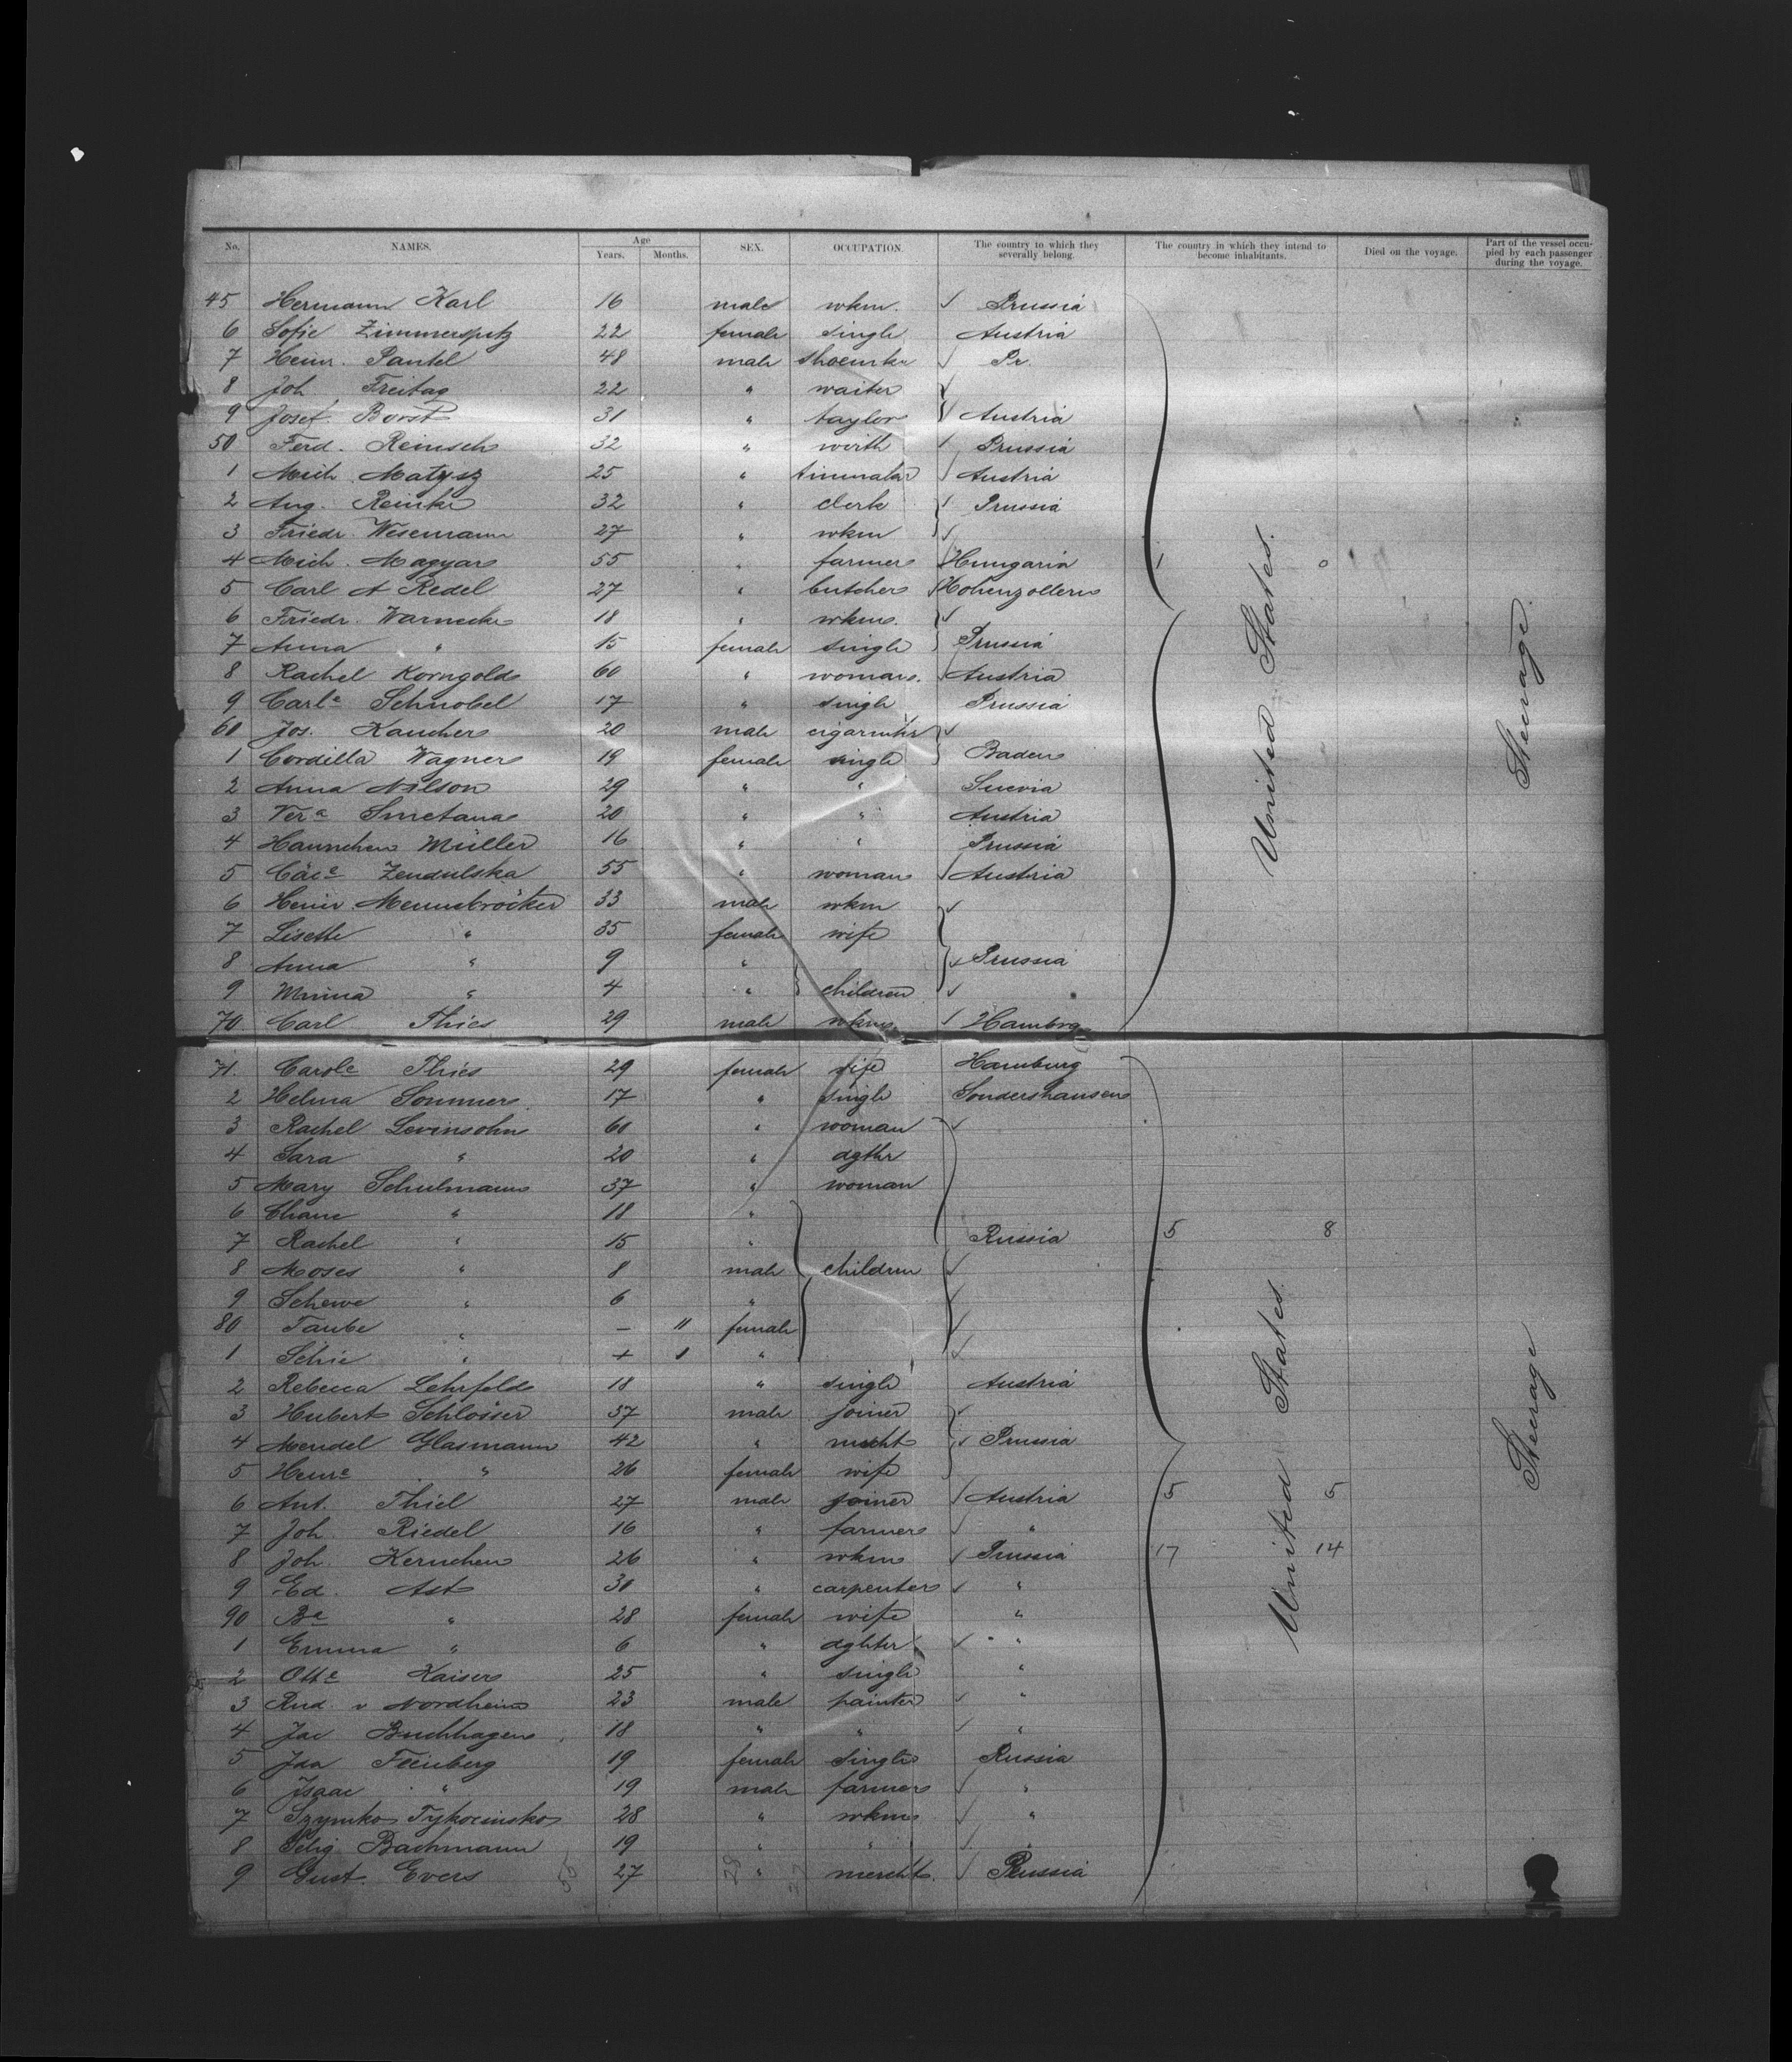 No. NAMES. Age Years. Months. SEX. OCCUPATION. The country to which they severally belong. The country in which they intend to become inhabitants. Died on the voyage. Part of the vessel occupied by each passenger during the voyage.
45 Hermann Karl 16 male wkm. Prussia
6 Sofie Zimmerspitz 22 female single Austria
7 Heinr. Pantel 48 male shoemkr Pr.
8 Joh. Freitag 22 " waiter
9 Josef Borst 31 " taylor Austria
50 Ferd. Reinsch 32 " wirth Prussia
1 Mich. Matysz 25 " Austria
2 Aug. Reinke 32 " clerk Prussia
3 Friedr. Wesemann 27 " wkm
4 Mich. Magyar 55 " farmer Hungaria 1 0
5 Carl A Redel 27 " butcher Hohenzollern
6 Friedr. Warnecke 18 " wkm.
7 Anna " 15 female single Prussia
8 Rachel Korngold 60 " woman. Austria
9 Carle Schnobel 17 " single Prussia
60 Jos. Kaucher 20 male cigarmkr
1 Cordilla Wagner 19 female single Baden
2 Anna Nilson 29 " " Suevia
3 Vera Smetana 20 " " Austria
4 Hannchen Müller 16 " " Prussia
5 Cäce Zendulska 55 " woman Austria
6 Heinr. Mennsbröcker 33 male wkm
7 Lisette " 35 female wife
8 Anna " 9 " Prussia
9 Minna " 4 " children
70 Carl Thies 29 male wkm Hambrg
United States.
Steerage.
71. Carole Thies 29 female wife Hamburg
2 Helma Sommer 17 " single Sondershausen
3 Rachel Levinsohn 60 " woman
4 Sara " 20 " dgthr
5 Mary Schulmann 37 " woman
6 Chane " 18 "
7 Rachel " 15 " Russia 5 8
8 Moses " 8 male children
9 Schewe " 6 "
80 Taube " — 11 female
1 Schie " + 1 "
2 Rebecca Lehrfeld 18 " single Austria
3 Hubert Schlösser 37 male joiner
4 Mendel Glasmann 42 " mercht Prussia
5 Henre " 26 female wife
6 Ant. Thiel 27 male joiner Austria 5 5
7 Joh. Riedel 16 " farmer "
8 Joh. Kernchen 26 " wkm Prussia 17 14
9 Ed. Ast 30 " carpenter "
90 Ba " 28 female wife "
1 Emma " 6 " dghter "
2 Otte Kaiser 25 " single "
3 Rud. v Nordheim 23 male painter "
4 Jac Buchhagen 18 " " "
5 Ida Feinberg 19 female single Russia
6 Isaac " 19 male farmer "
7 Szymko Tykocinsko 28 " wkm "
8 Selig Bachmann 19 " " "
9 Gust. Evers 27 " mercht. Prussia
55 28 27
United States.
Steerage